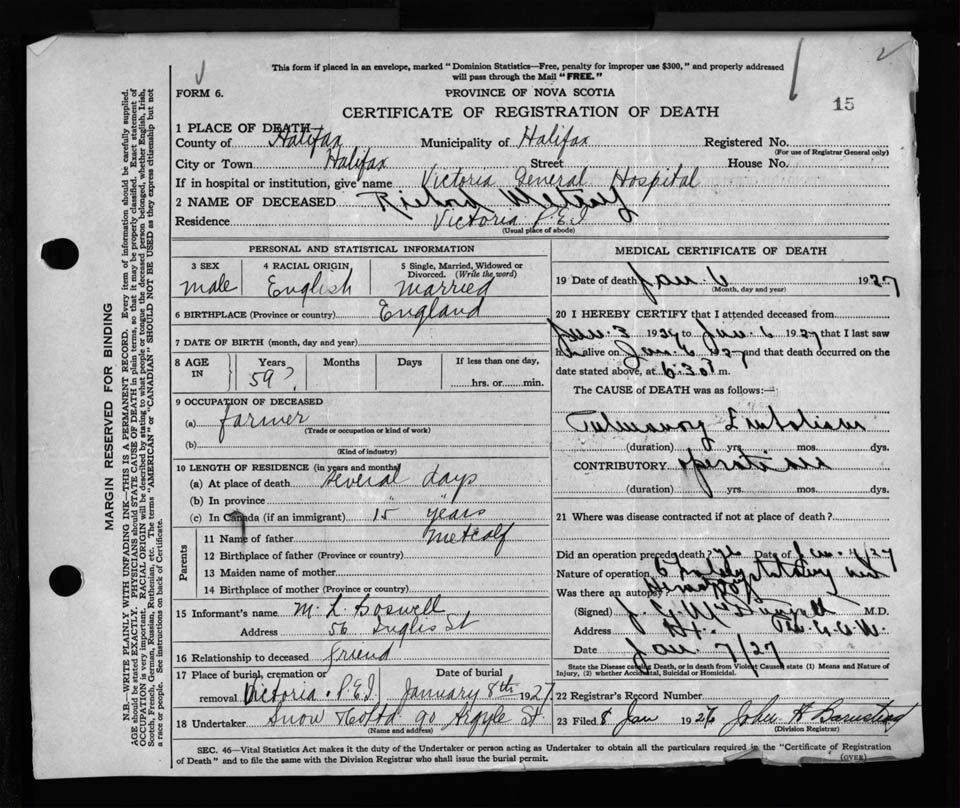 This form if placed in an envelope, marked "Dominion Statistics—Free, penalty for improper use $300," and properly addressed
will pass through the Mail "FREE."
FORM 6.
PROVINCE OF NOVA SCOTIA
15
CERTIFICATE OF REGISTRATION OF DEATH
1 PLACE OF DEATH—
County of Halifax Municipality of Halifax Registered No.
(For use of Registrar General only)
City or Town Halifax Street House No.
If in hospital or institution, give name Victoria General Hospital
2 NAME OF DECEASED Richard Metcalf
Residence Victoria P.E.I
(Usual place of abode)
PERSONAL AND STATISTICAL INFORMATION
3 SEX 4 RACIAL ORIGIN 5 Single, Married, Widowed or Divorced. (Write the word)
male English married
6 BIRTHPLACE (Province or country) England
7 DATE OF BIRTH (month, day and year)
8 AGE IN Years Months Days If less than one day,
59? hrs. or min.
9 OCCUPATION OF DECEASED
(a) farmer
(Trade or occupation or kind of work)
(b)
(Kind of industry)
10 LENGTH OF RESIDENCE (in years and months)
(a) At place of death several days
(b) In province " "
(c) In Canada (if an immigrant) 15 years
Parents
11 Name of father Metcalf
12 Birthplace of father (Province or country)
13 Maiden name of mother
14 Birthplace of mother (Province or country)
15 Informant's name M. L. Boswell
Address 56 Inglis St
16 Relationship to deceased friend
17 Place of burial, cremation or removal Victoria. P.E.I Date of burial January 8th 1927
18 Undertaker Snow 90 Argyle St.
(Name and address)
MEDICAL CERTIFICATE OF DEATH
19 Date of death Jan. 6 1927
(Month, day and year)
20 I HEREBY CERTIFY that I attended deceased from
Jan. 3 1927 to Jan. 6 1927 that I last saw
h alive on Jan. 6 1927 and that death occurred on the
date stated above, at 6:30 m.
The CAUSE OF DEATH was as follows:—
Pulmonary Embolism
(duration) yrs. mos. dys.
CONTRIBUTORY operation
(duration) yrs. mos. dys.
21 Where was disease contracted if not at place of death?
Did an operation precede death? yes Date of Jan. /27
Nature of operation
Was there an autopsy?
(Signed) M.D.
Address
Date Jan 7/27
State the Disease causing Death, or in death from Violent Causes state (1) Means and Nature of
Injury, (2) whether Accidental, Suicidal or Homicidal.
22 Registrar's Record Number
23 Filed 8 Jan 192 John H Barnstead
(Division Registrar)
SEC. 46—Vital Statistics Act makes it the duty of the Undertaker or person acting as Undertaker to obtain all the particulars required in the "Certificate of Registration
of Death" and to file the same with the Division Registrar who shall issue the burial permit.
(OVER)
MARGIN RESERVED FOR BINDING
N.B.—WRITE PLAINLY WITH UNFADING INK—THIS IS A PERMANENT RECORD. Every item of information should be carefully supplied.
AGE should be stated EXACTLY. PHYSICIANS should STATE CAUSE OF DEATH in plain terms, so that it may be properly classified. Exact statement of
OCCUPATION is very important. RACIAL ORIGIN will be described by stating to what people or tongue the deceased person belonged, whether English, Irish,
Scotch, French, German, Russian, Ruthenian, etc. The terms "AMERICAN" or "CANADIAN" SHOULD NOT BE USED as they express citizenship but not
a race or people. See instructions on back of Certificate.